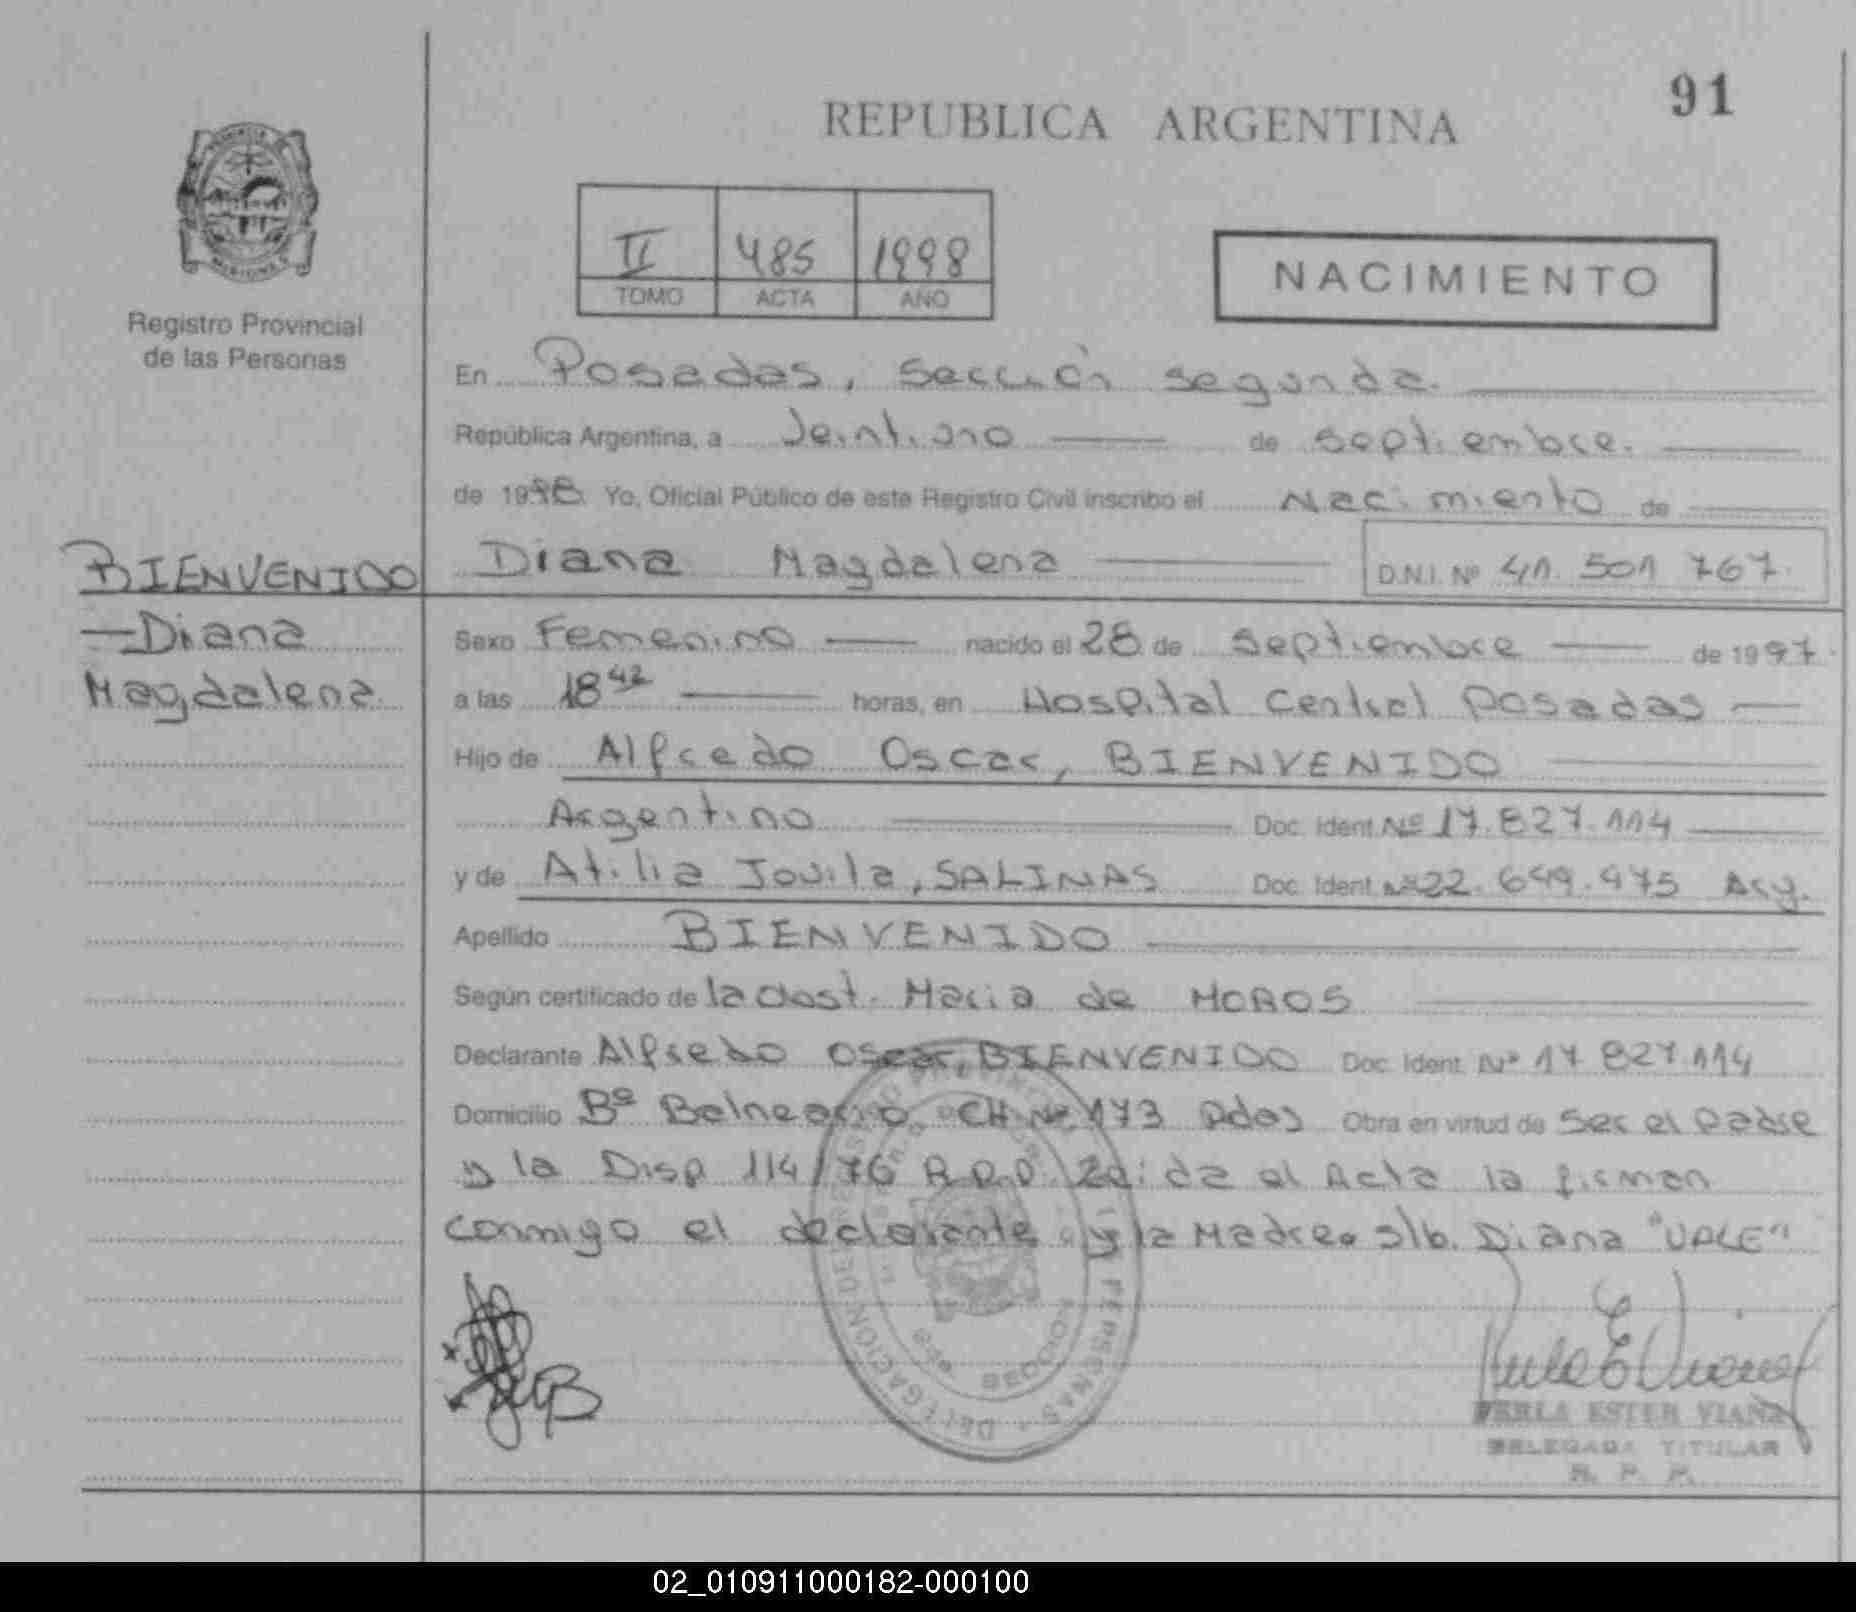 91
REPUBLICA ARGENTINA
II 485 1998
TOMO ACTA AÑO
NACIMIENTO
Registro Provincial
de las Personas
En Posadas, Sección segunda.
República Argentina, a Veintiuno de septiembre.
de 1998 Yo, Oficial Público de este Registro Civil inscribo el Nacimiento de
BIENVENIDO Diana Magdalena D.N.I. Nº 41.501.767.
Diana
Magdalena
Sexo Femenino nacido el 28 de septiembre de 1997.
a las 18 42 horas, en Hospital Central Posadas
Hijo de Alfredo Oscar, BIENVENIDO
Argentino Doc. Ident. Nº 17.827.114
y de Atilia Jovila, SALINAS Doc. Ident. Nº 22.649.475 Arg.
Apellido BIENVENIDO
Según certificado de la Obst. Maria de MOROS
Declarante Alfredo Oscar, BIENVENIDO Doc. Ident. Nº 17.827.114
Domicilio Bº Balneario CH Nº 173 Pdas Obra en virtud de Ser el Padre
y la Disp 114/76 R.P.P. Leida el Acta la firman
conmigo el declarante y la Madre. s/b. Diana "VALE"
PERLA ESTER VIANA
DELEGADA TITULAR
R. P. P.
02_010911000182-000100